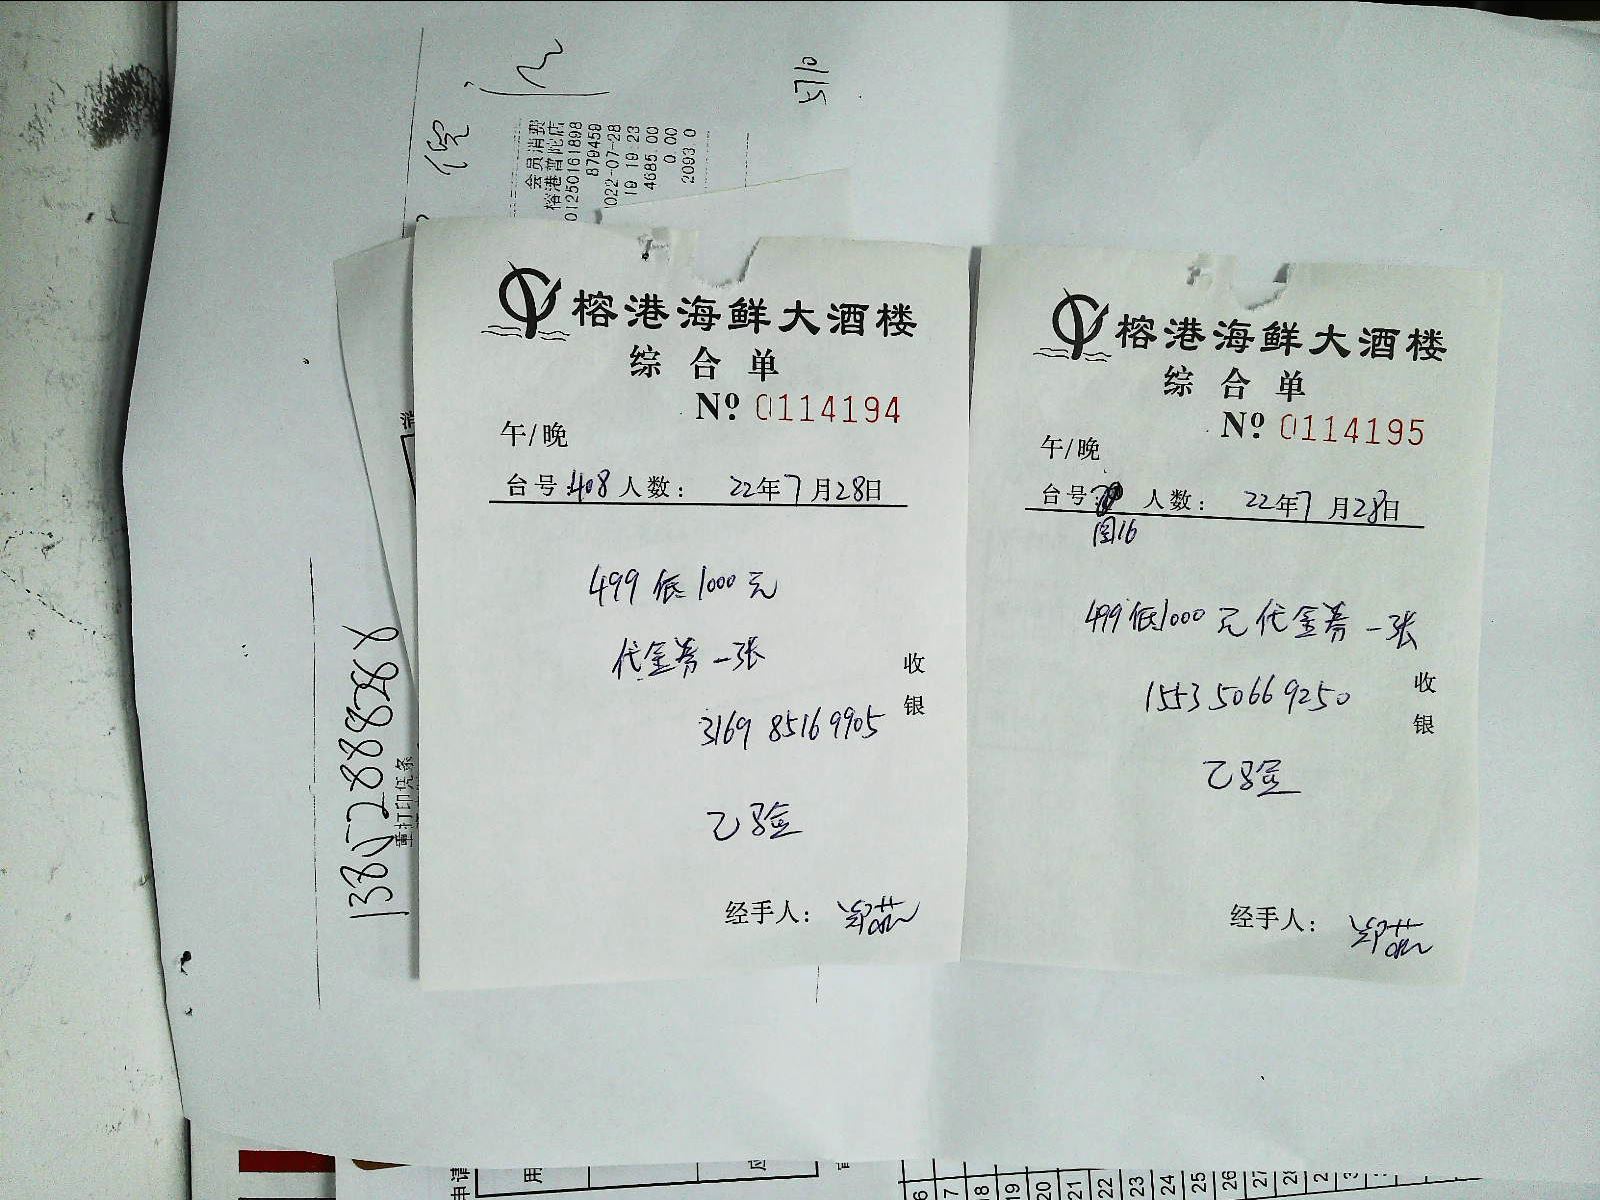 会员消费
榕港普陀店
01250161898
879459
2022-07-28
19 19 23
4685.00
0.00
2093.0
榕港海鲜大酒楼
综合单
Nº 0114194
午/晚
台号:408 人数: 22年7月28日
499 低 1000 元
代金券一张
3169 8516 9905
已验
收银
经手人:
榕港海鲜大酒楼
综合单
Nº 0114195
午/晚
台号: 人数: 22年7月28日
图16
499低1000元代金券一张
1553 5066 9250
已验
收银
经手人:
重打印凭条
申请
用
17
18
19
20
21
22
23
24
25
26
27